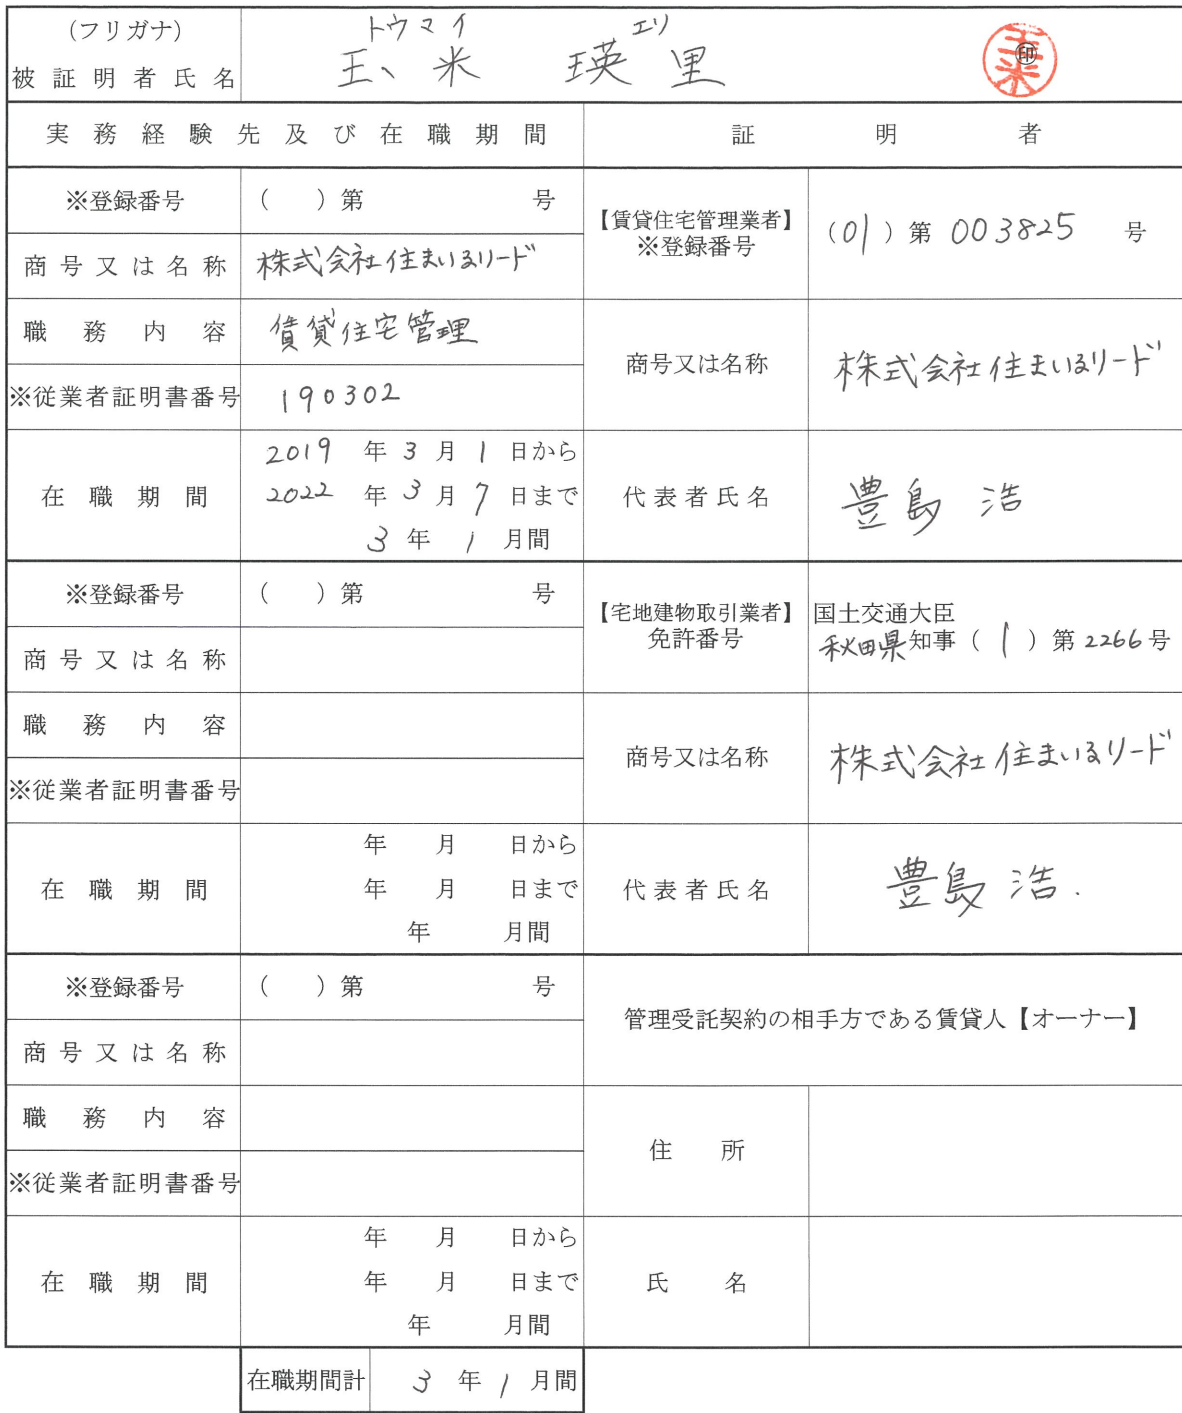 (フリガナ)
トウマイ エリ
被証明者氏名
玉米 瑛里
印
玉米
実務経験先及び在職期間
証明者
※登録番号
( )第 号
【賃貸住宅管理業者】
※登録番号
(01)第 003825 号
商号又は名称
株式会社住まいるリード
職務内容
賃貸住宅管理
商号又は名称
株式会社住まいるリード
※従業者証明書番号
190302
在職期間
2019 年 3 月 1 日から
2022 年 3 月 7 日まで
3 年 1 月間
代表者氏名
豊島 浩
※登録番号
( )第 号
【宅地建物取引業者】
免許番号
国土交通大臣
秋田県知事( 1 )第2266号
商号又は名称
職務内容
商号又は名称
株式会社住まいるリード
※従業者証明書番号
在職期間
年 月 日から
年 月 日まで
年 月間
代表者氏名
豊島 浩.
※登録番号
( )第 号
管理受託契約の相手方である賃貸人【オーナー】
商号又は名称
職務内容
住所
※従業者証明書番号
在職期間
年 月 日から
年 月 日まで
年 月間
氏名
在職期間計
3 年 1 月間